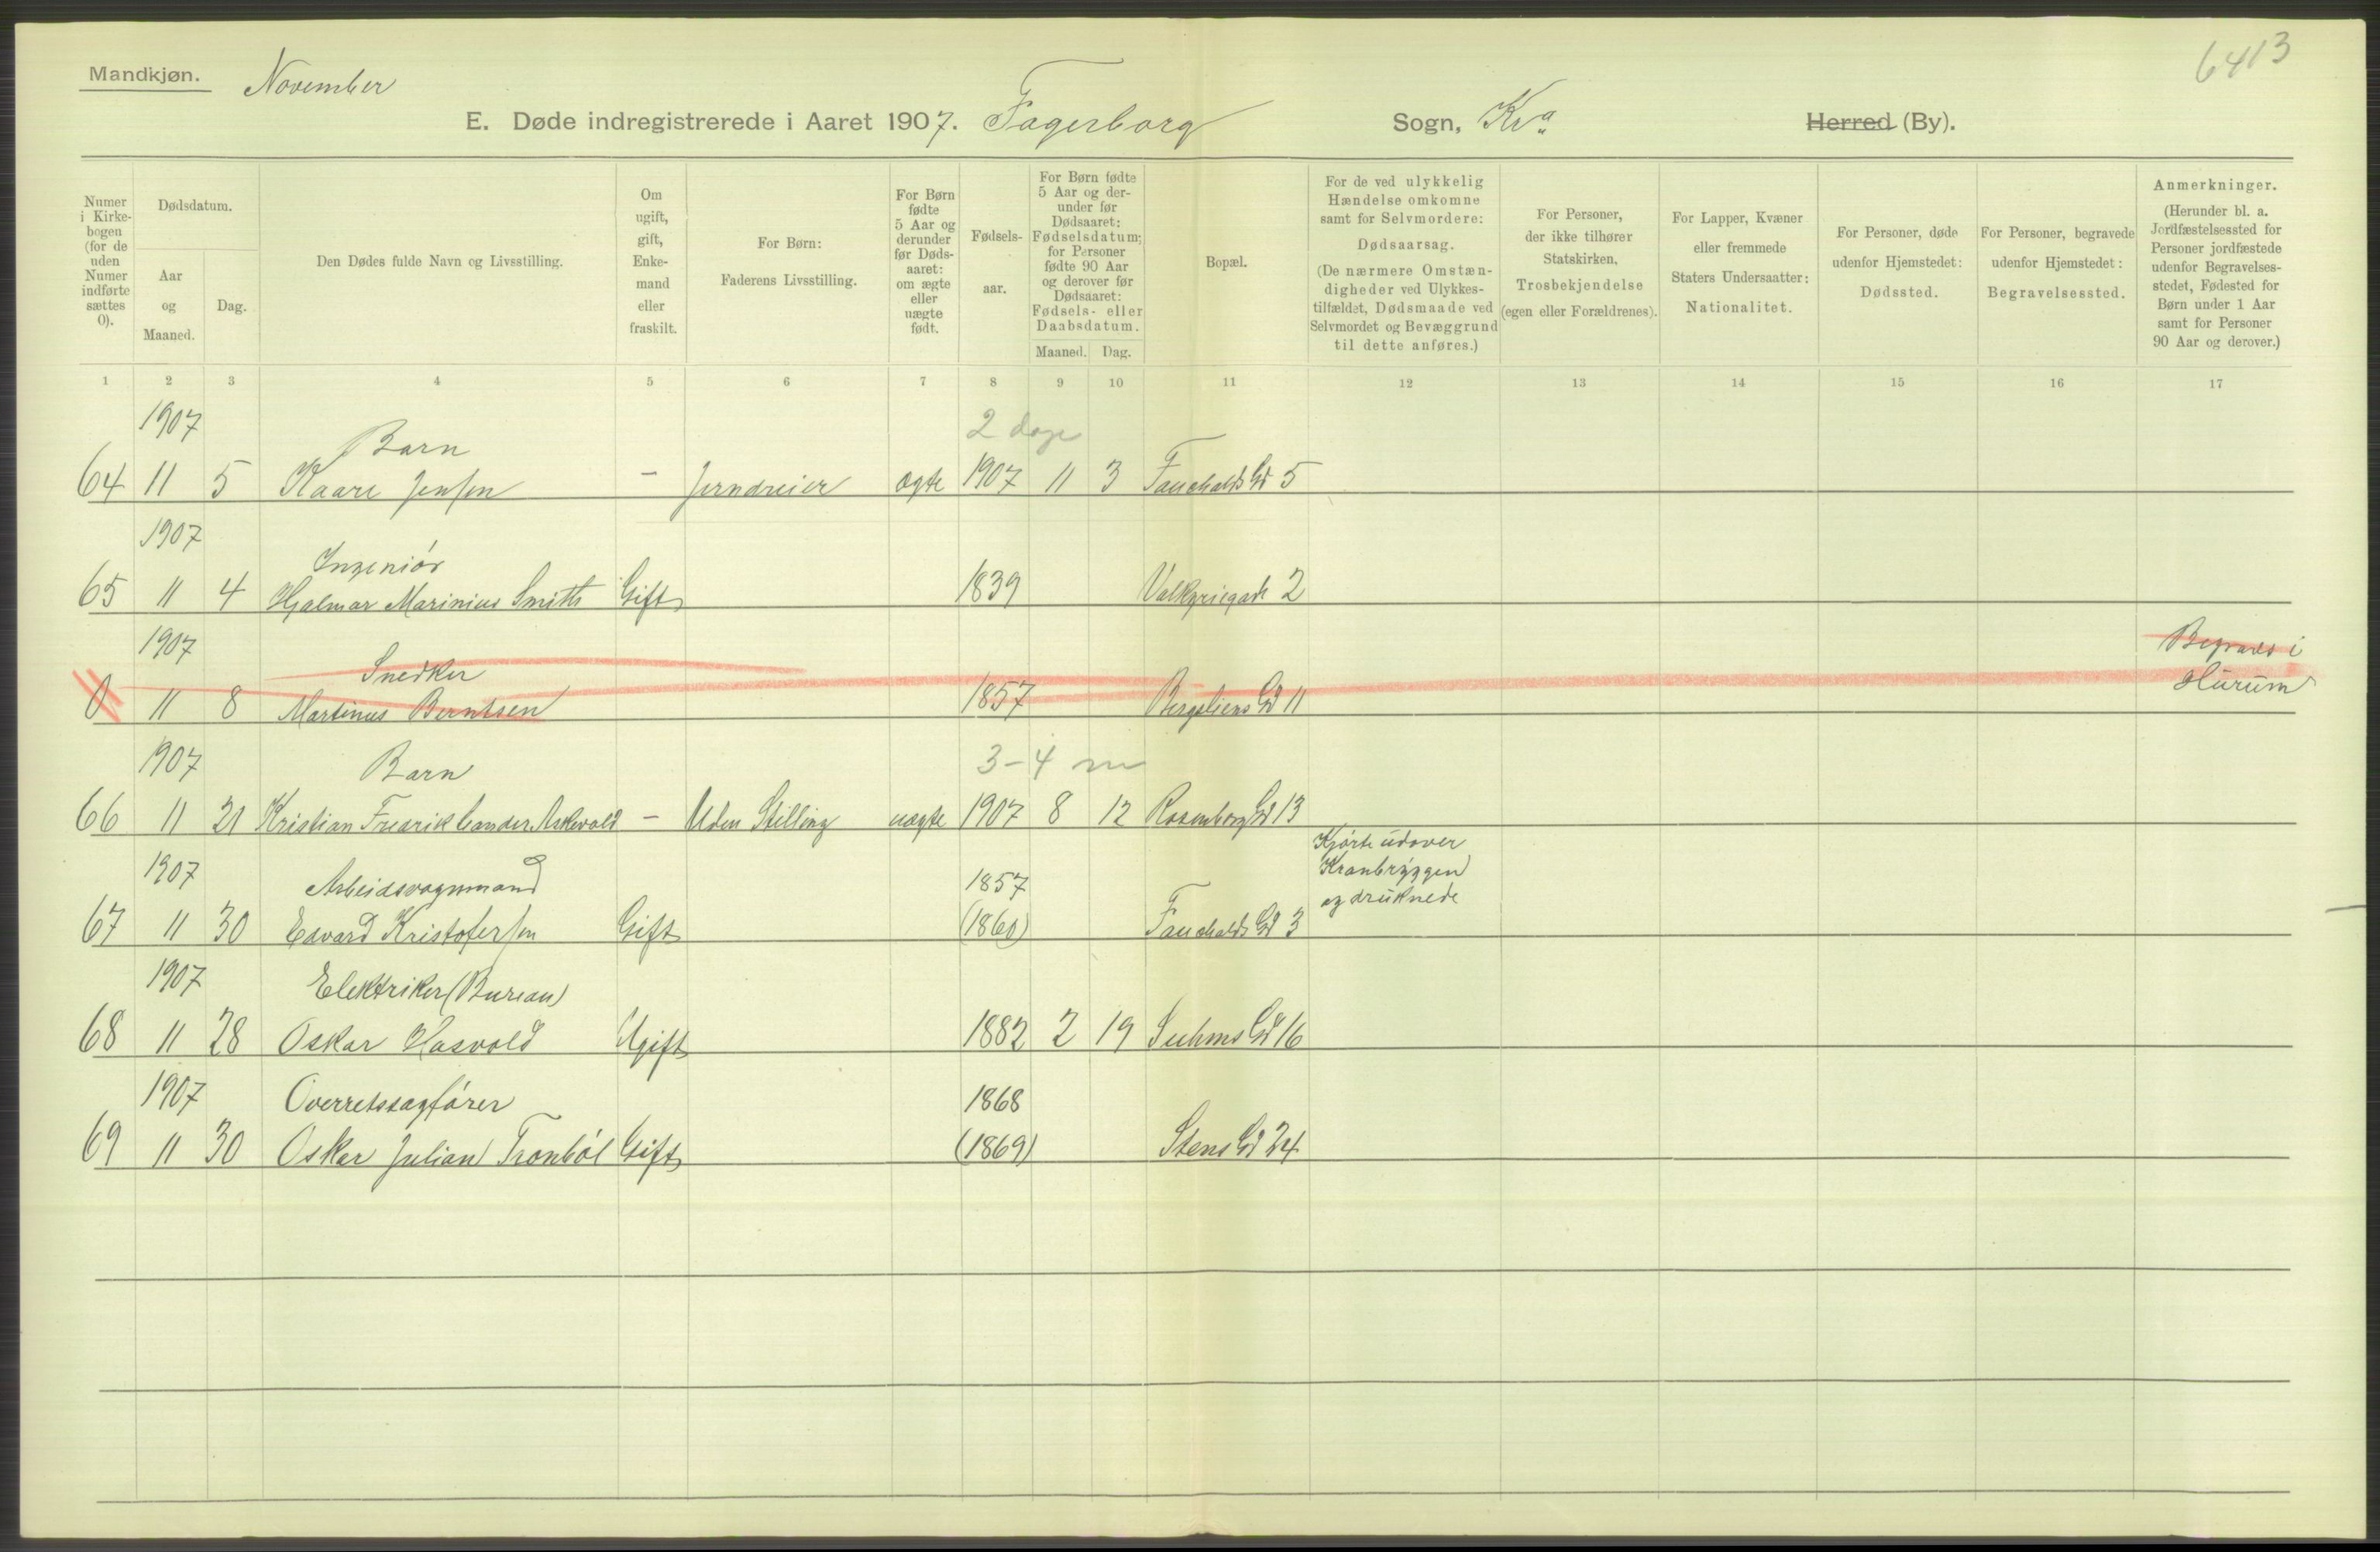 6413
Mandkjøn. November
E. Døde indregistrerede i Aaret 1907. Fagerborg Sogn, Kra Herred (By).
Numer i Kirke- bogen (for de uden Numer indførte sættes 0).
Dødsdatum.
Aar og Maaned.
Dag.
Den Dødes fulde Navn og Livsstilling.
Om ugift, gift, Enke- mand eller fraskilt.
For Børn: Faderens Livsstilling.
For Børn fødte 5 Aar og derunder før Døds- aaret: om ægte eller uægte født.
Fødsels- aar.
For Børn fødte 5 Aar og der- under før Dødsaaret: Fødselsdatum; for Personer fødte 90 Aar og derover før Dødsaaret: Fødsels- eller Daabsdatum.
Maaned. Dag.
Bopæl.
For de ved ulykkelig Hændelse omkomne samt for Selvmordere: Dødsaarsag. (De nærmere Omstæn- digheder ved Ulykkes- tilfældet, Dødsmaade ved Selvmordet og Bevæggrund til dette anføres.)
For Personer, der ikke tilhører Statskirken, Trosbekjendelse (egen eller Forældrenes).
For Lapper, Kvæner eller fremmede Staters Undersaatter: Nationalitet.
For Personer, døde udenfor Hjemstedet: Dødssted.
For Personer, begravede udenfor Hjemstedet: Begravelsessted.
Anmerkninger. (Herunder bl. a. Jordfæstelsessted for Personer jordfæstede udenfor Begravelses- stedet, Fødested for Børn under 1 Aar samt for Personer 90 Aar og derover.)
1 2 3 4 5 6 7 8 9 10 11 12 13 14 15 16 17
1907 Barn 2 dage
64 11 5 Kaare Jensen - Jerndreier ægte 1907 11 3 Fauchalds Gd 5
1907 Ingeniør
65 11 4 Hjalmar Marinius Smith Gift 1839 Valkyriegade 2
1907 Snedker Begraves i
0 11 8 Martinus Berntsen 1857 Bergsliens Gd 11 Hurum
1907 Barn 3-4 m
66 11 21 Kristian Fredrik - Uden Stilling uægte 1907 8 12 Rosenborg Gd 13
Kjørte udover
1907 Arbeidsvognmand 1857 Kranbryggen
og druknede
67 11 30 Edvard Kristofersen Gift (1860) Fauchalds Gd 3
1907 Elektriker (Bureau)
68 11 28 Oskar Hasvold Ugift 1882 2 19 Suhms Gd 16
1907 Overretssagfører 1868
69 11 30 Oskar Julian Tronbøl Gift (1869) Stens Gd 24